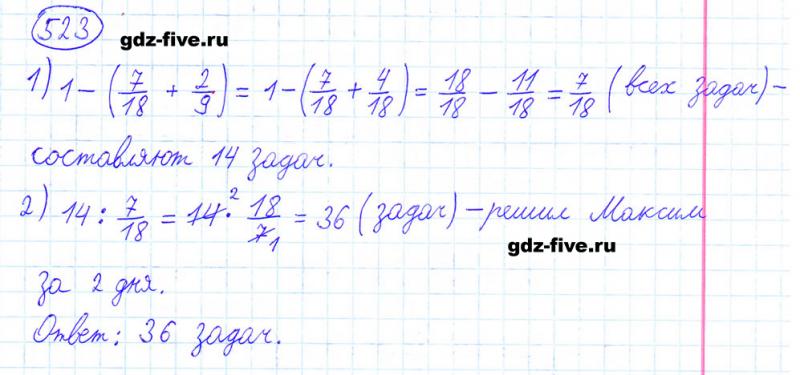 523
gdz-five.ru
1) 1 − (7/18 + 2/9) = 1 − (7/18 + 4/18) = 18/18 − 11/18 = 7/18 (всех задач) −
составляют 14 задач.
2) 14 : 7/18 = 14² · 18/7₁ = 36 (задач) − решил Максим
gdz-five.ru
за 2 дня.
Ответ: 36 задач.